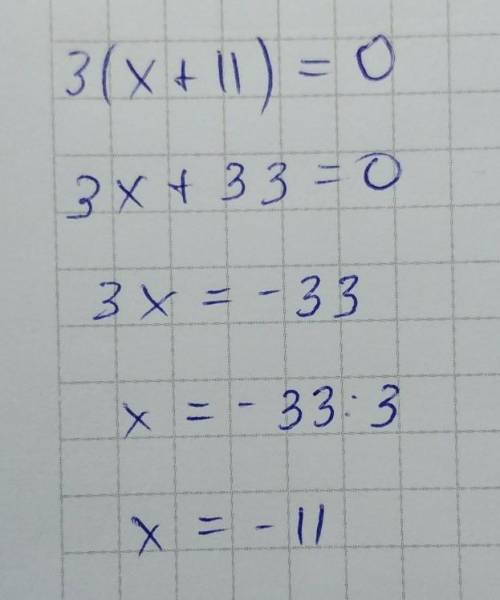 3(x+11)=0
3x+33=0
3x=-33
x=-33:3
x=-11